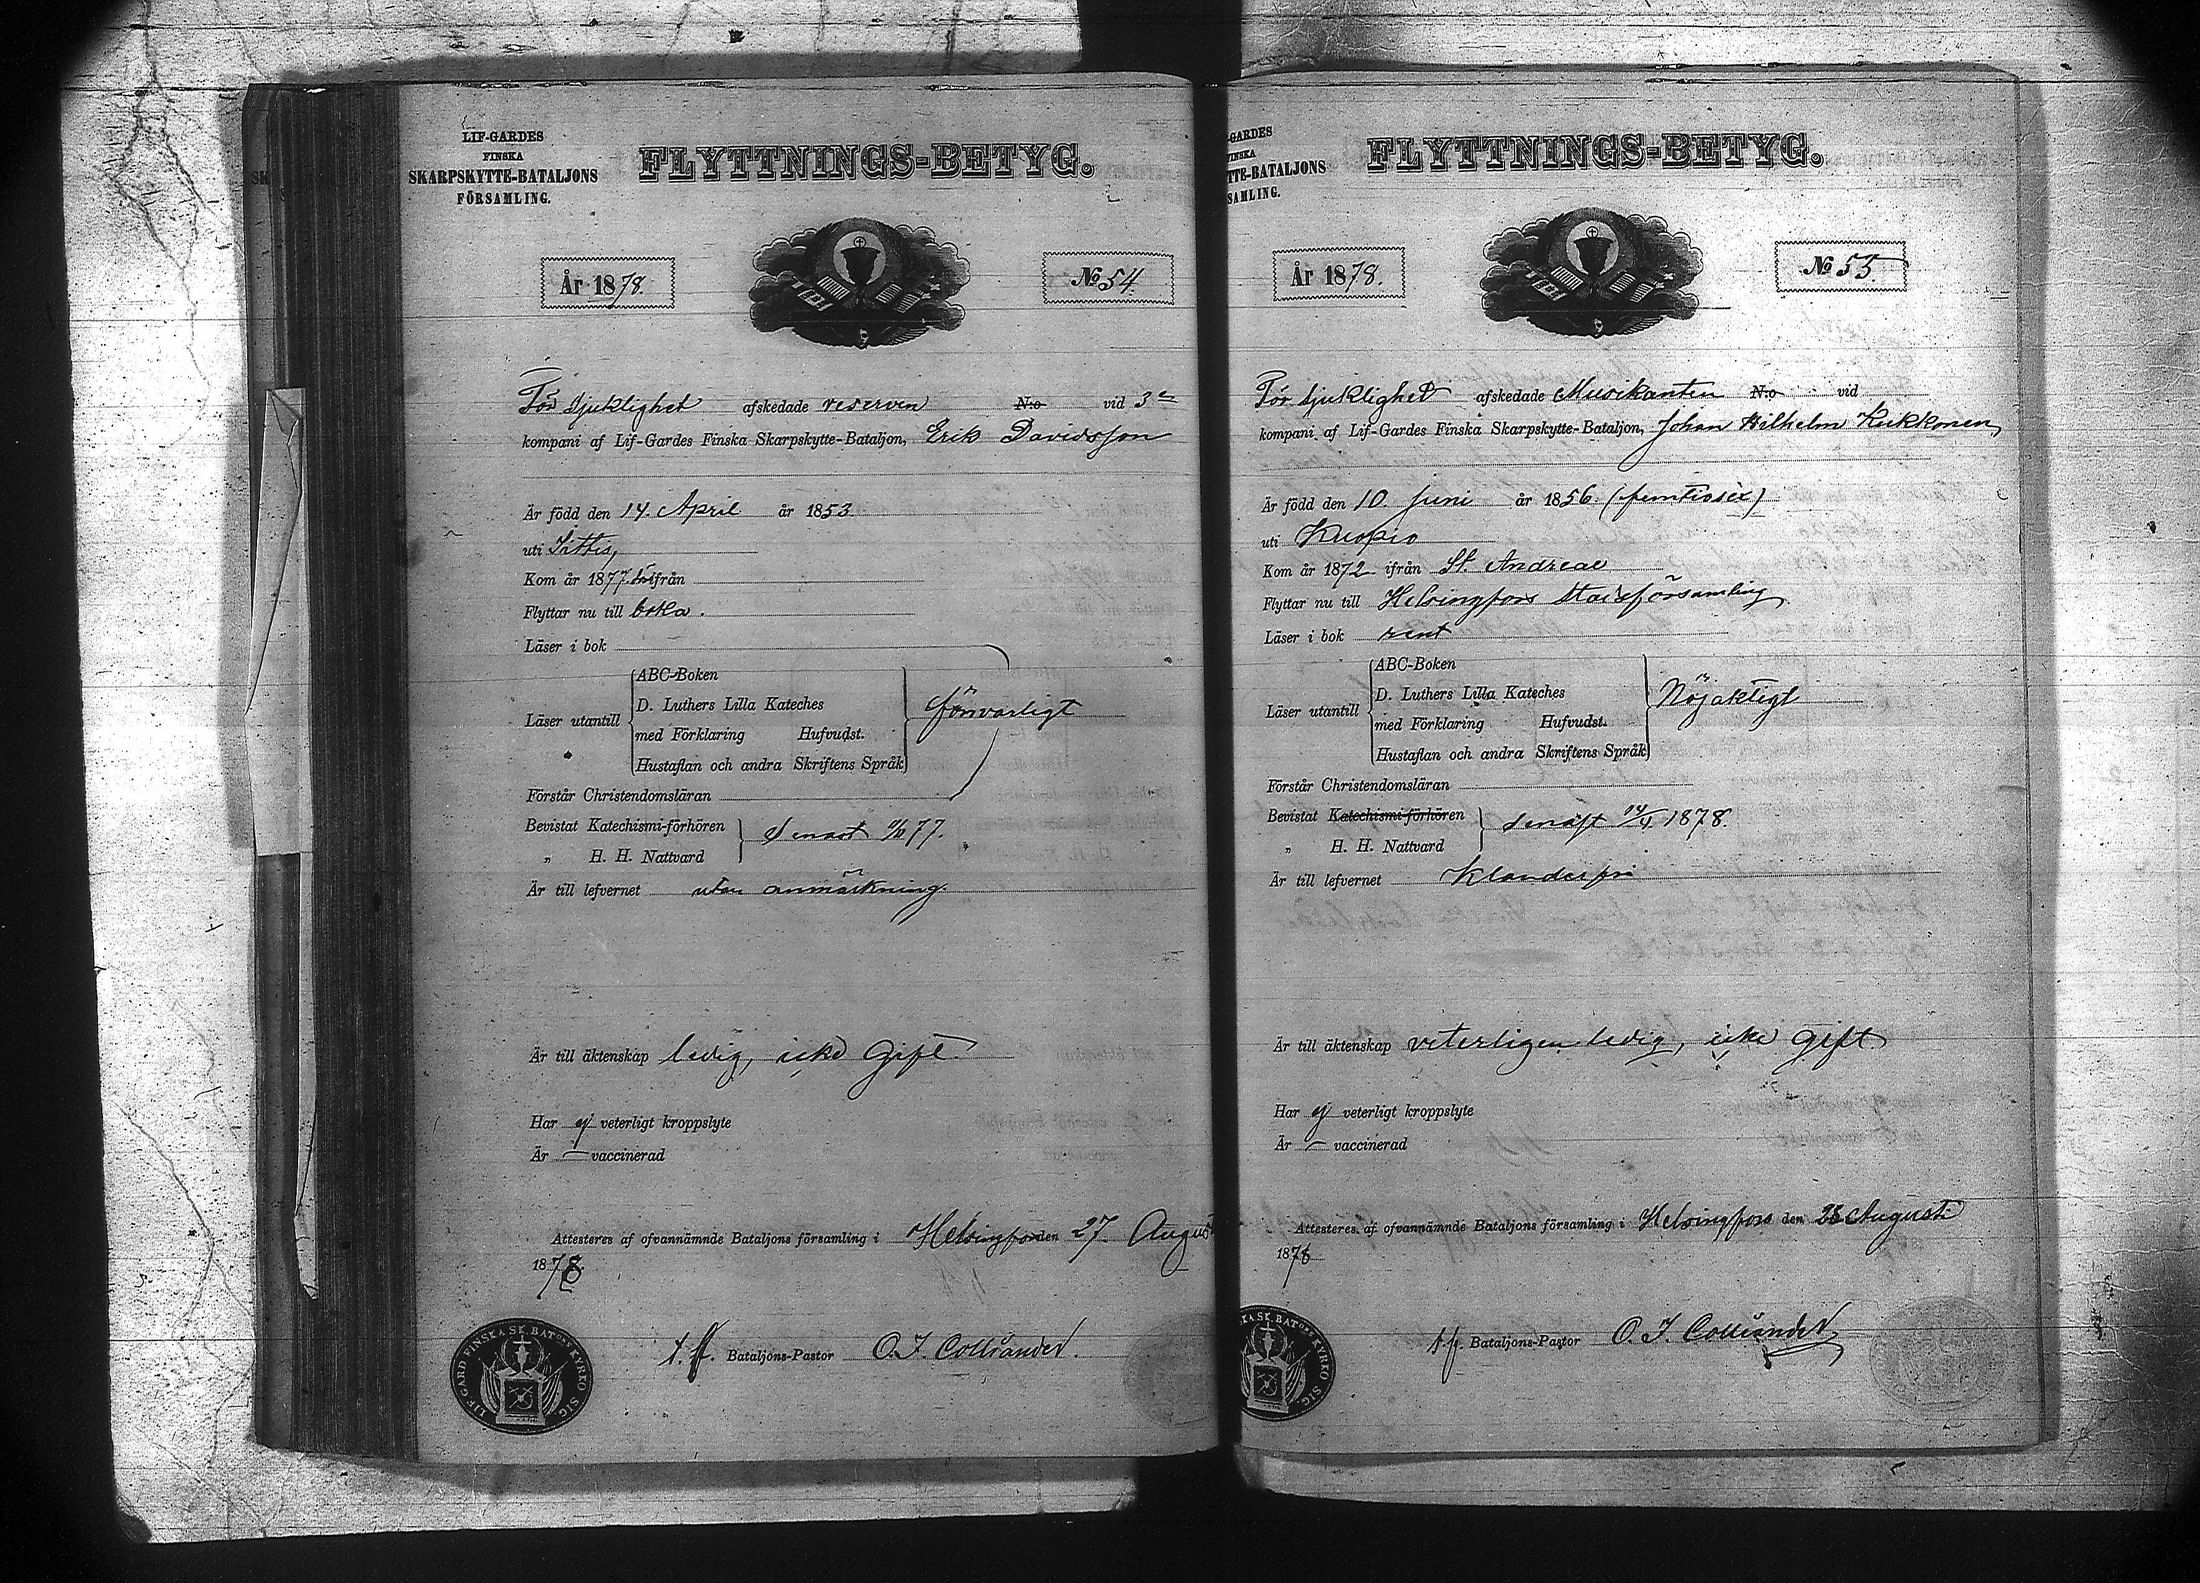 LIF-GARDES
FINSKA
SKARPSKYTTE-BATALJONS
FÖRSAMLING.
FLYTTNINGS-BETYG.
År 1878.
No 54.
För sjuklighet afskedade reserven N:o vid 3e
kompani af Lif-Gardes Finska Skarpskytte-Bataljon, Erik Davidsson
Är född den 14. April år 1853
uti Iittis,
Kom år 1877. ifrån
Flyttar nu till
Läser i bok
ABC-Boken
D. Luthers Lilla Kateches
Läser utantill
med Förklaring Hufvudst.
Hustaflan och andra Skriftens Språk
försvarligt
Förstår Christendomsläran
Bevistat Katechismi-förhören
„ H. H. Nattvard
senast 77.
Är till lefvernet utan anmärkning.
Är till äktenskap ledig, icke gift
Har ej veterligt kroppslyte
Är — vaccinerad
Attesteres af ofvannämnde Bataljons församling i Helsingfors den 27. August
1878.
t.f. Bataljons-Pastor O. I. Colliander.
LIF. GARD FINSKA SK. BAT:ONS KYRKO SIG.
-GARDES
INSKA
TTE-BATALJONS
SAMLING.
FLYTTNINGS-BETYG.
År 1878.
No 55
För sjuklighet afskedade Musikanten N:o vid
kompani af Lif-Gardes Finska Skarpskytte-Bataljon, Johan Wilhelm Kukkonen,
Är född den 10 Juni år 1856. (femtiosex)
uti Kuopio
Kom år 1872 ifrån St. Andreae
Flyttar nu till Helsingfors stadsförsamling
Läser i bok rent
ABC-Boken
D. Luthers Lilla Kateches
Läser utantill
med Förklaring Hufvudst.
Hustaflan och andra Skriftens Språk
Nöjaktigt
Förstår Christendomsläran
Bevistat Katechismi-förhören
„ H. H. Nattvard
senast 1878.
Är till lefvernet Klanderfri
Är till äktenskap veterligen ledig, icke gift
Har ej veterligt kroppslyte
Är — vaccinerad
Attesteres af ofvannämnde Bataljons församling i Helsingfors den 28 Augusti
1878
t.f. Bataljons-Pastor O. I. Colliander
KA SK. BAT:ONS KYRKO SIG.